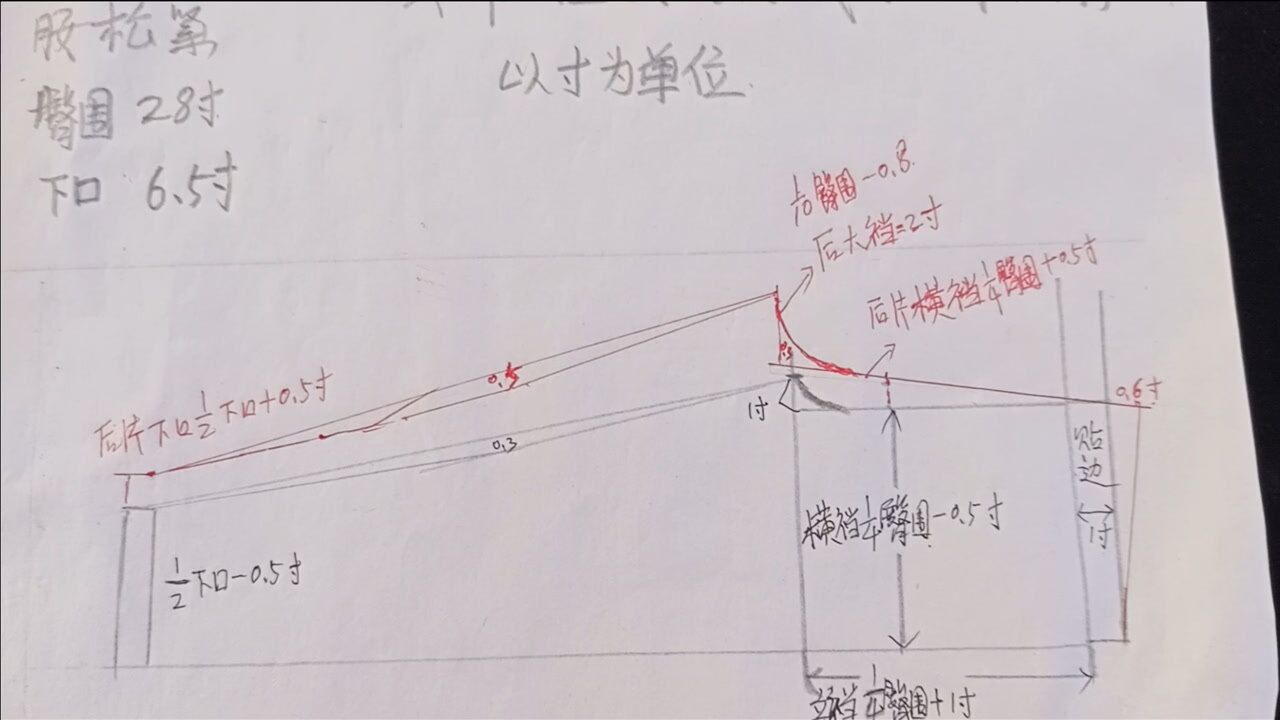 股松紧
以寸为单位
臀围 28寸
下口 6.5寸
1/10臀围-0.8
后大裆=2寸
后片横裆1/4臀围+0.5寸
后片下口1/2下口+0.5寸
0.5
0.6寸
1寸
0.3
贴边
1寸
横裆1/4臀围-0.5寸
1/2下口-0.5寸
立裆1/4臀围+1寸